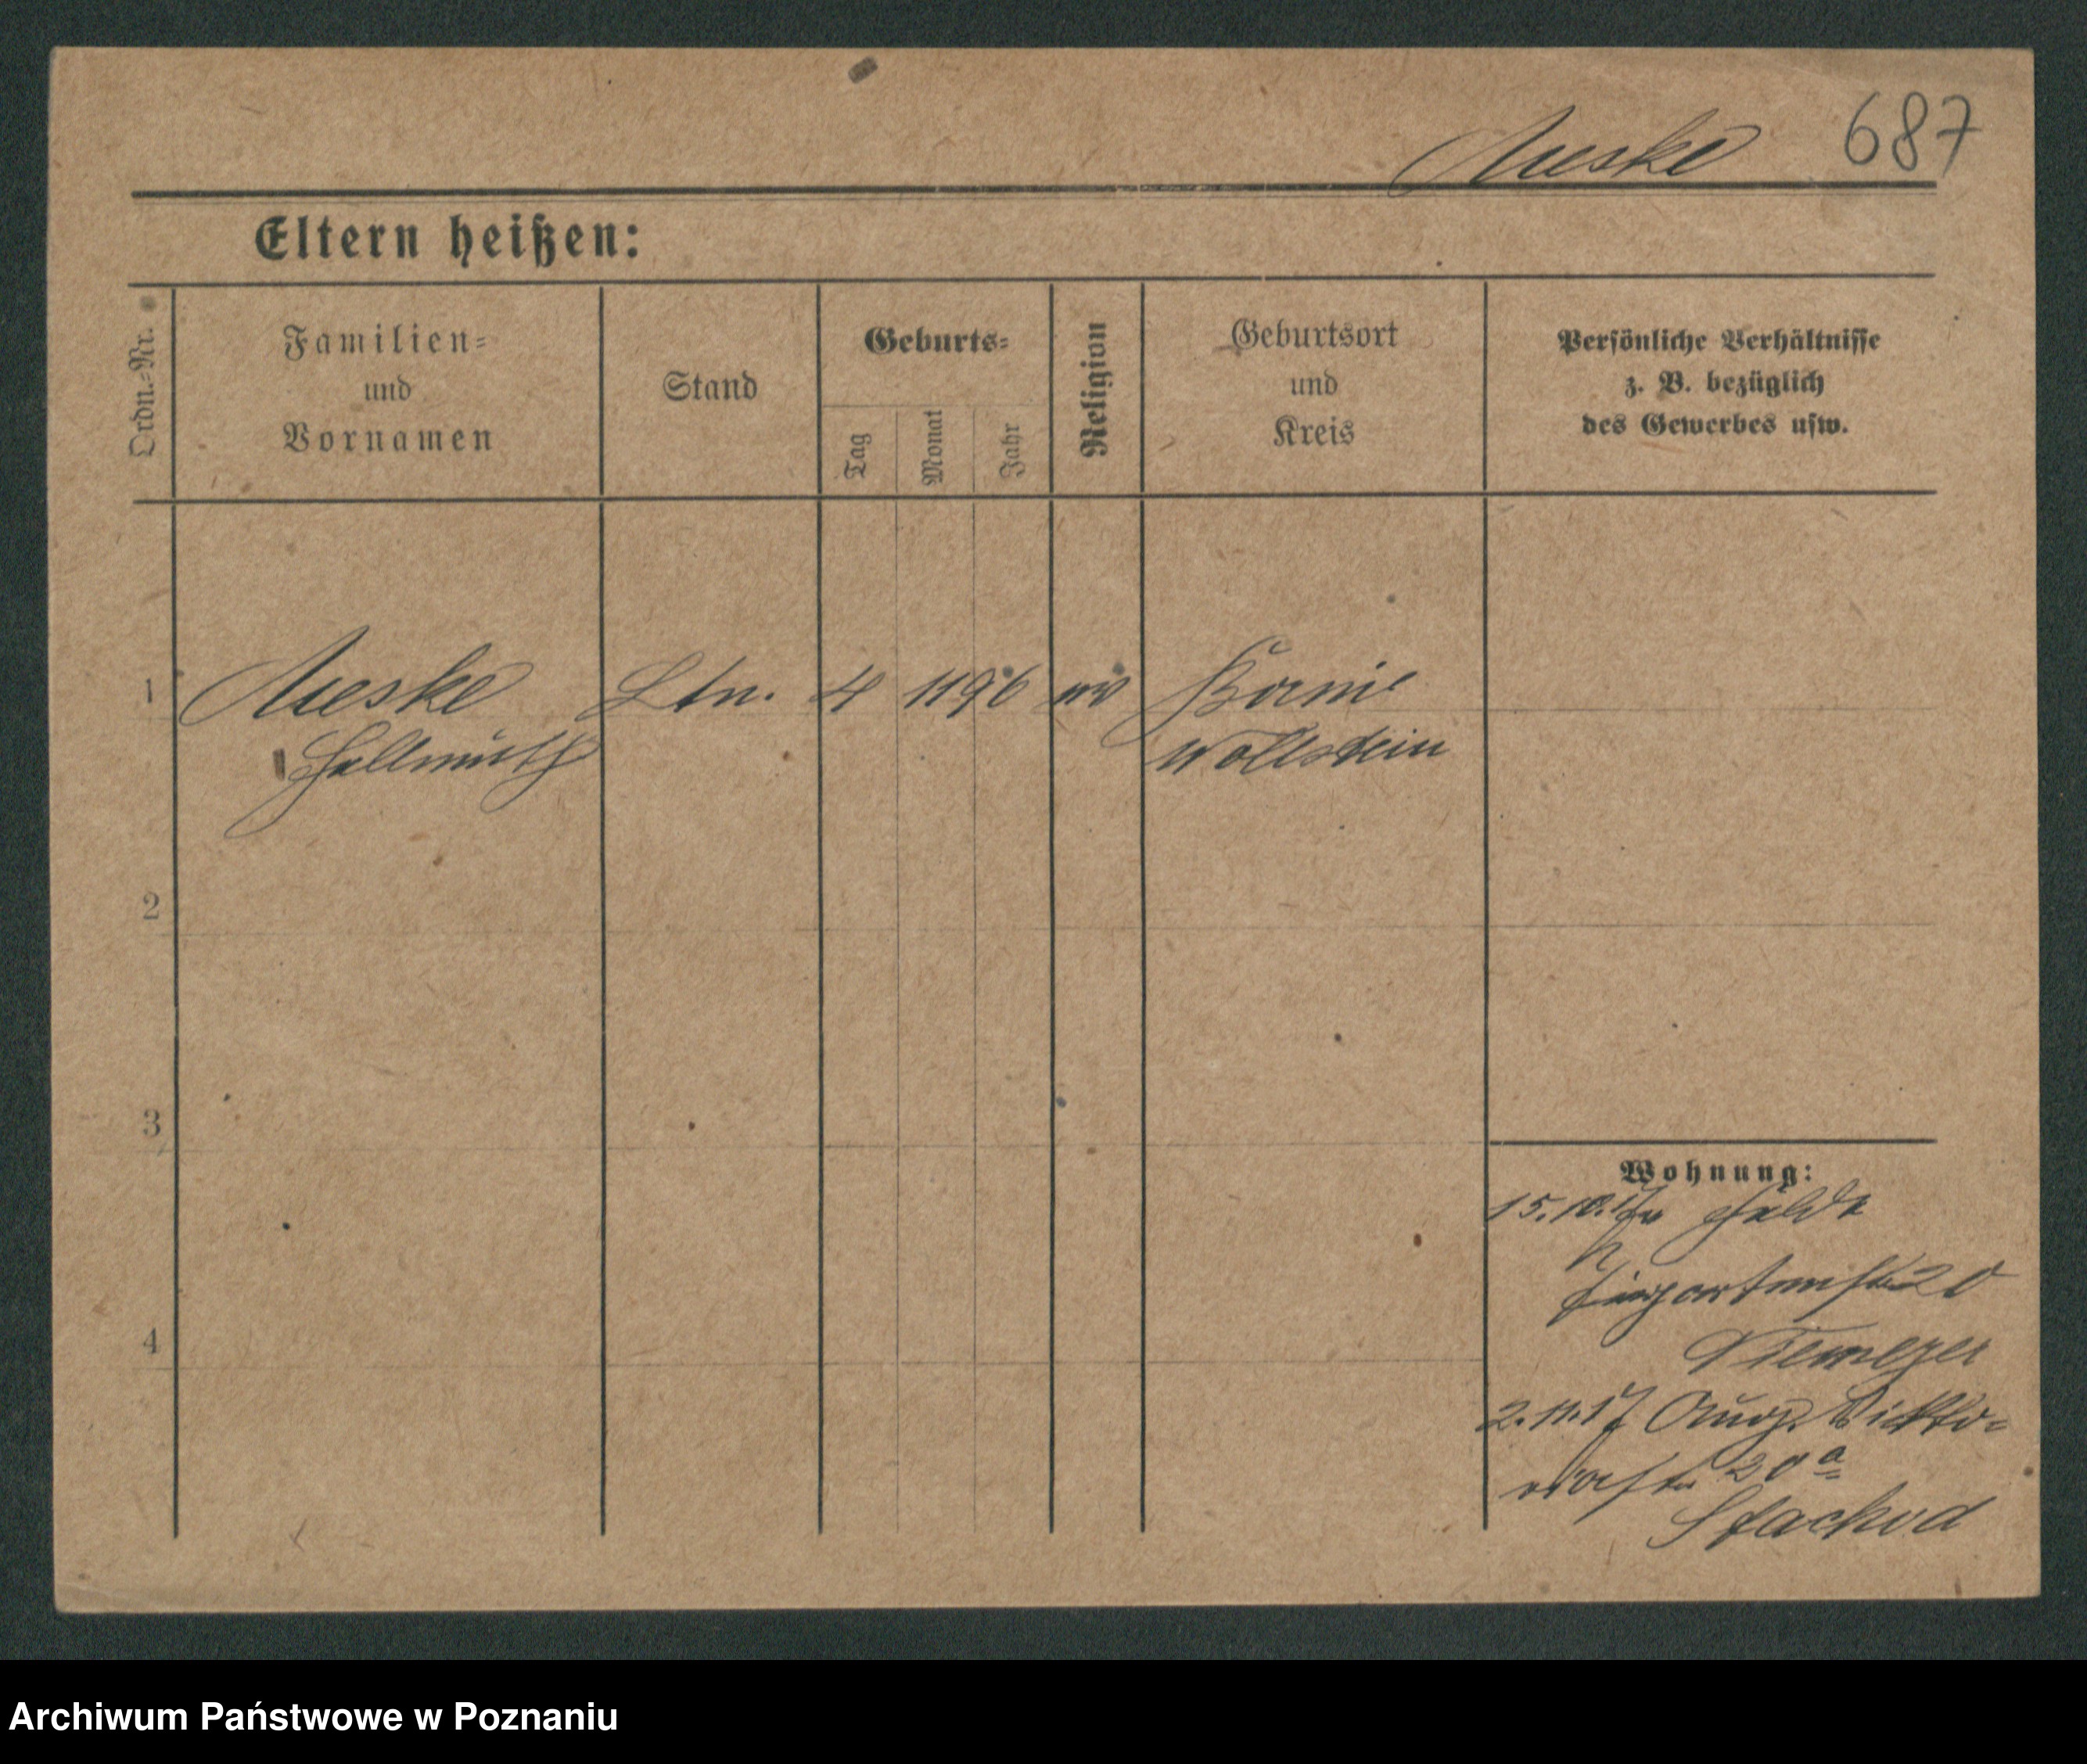 Meske 687
Eltern heißen:
Ordn.-Nr.
Familien-
und
Vornamen
Stand
Geburts-
Tag
Monat
Jahr
Religion
Geburtsort
und
Kreis
Persönliche Verhältnisse
z. B. bezüglich
des Gewerbes usw.
1 Meske Ltn. 4 11 96
Hellmuth Wollstein
2
3
4
Wohnung:
15.10.17 Felde
20
Niemeyer
2.11.17 Aug. Vikto-
riastr. 20a
Archiwum Państwowe w Poznaniu